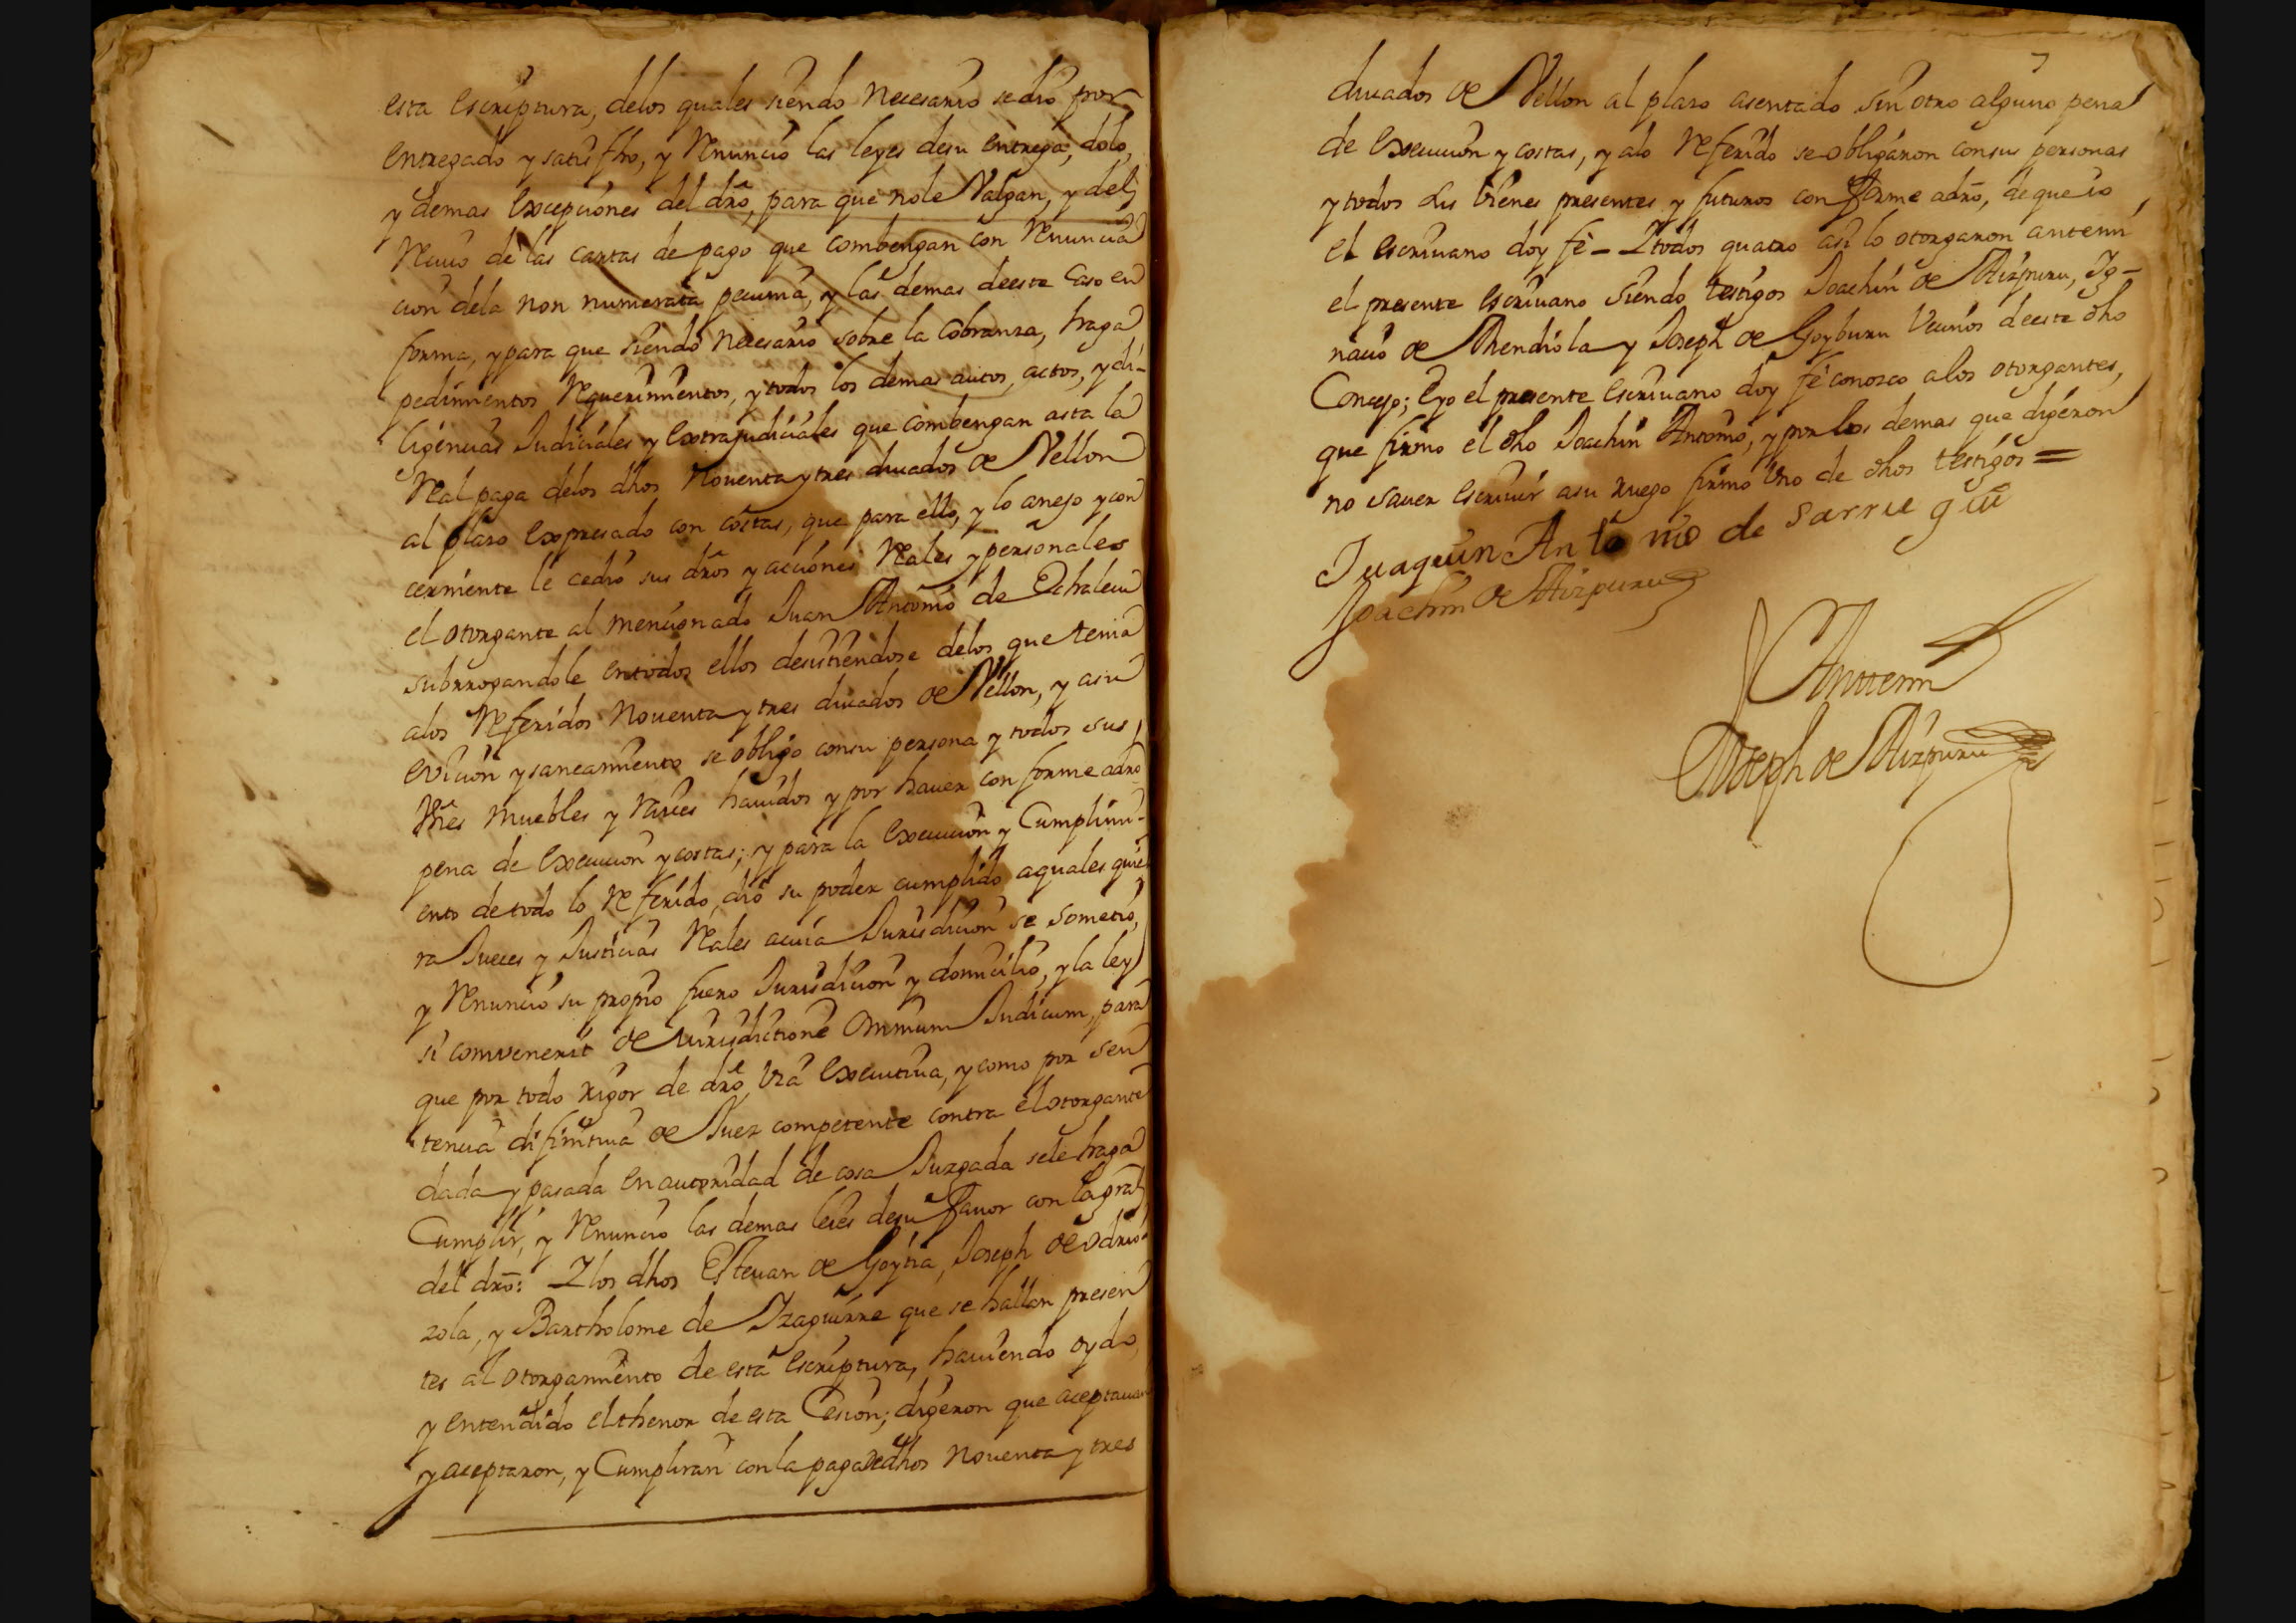 esta escriptura, delos quales siendo necesario se dió por
entregado y satisfho, y renuncio las leyes desu entrega, dolo,
y demas excepciones del dro, para que nole valgan, y del
reciuo de las cartas de pago que combengan con renuncia
cion dela non numerata pecunia, y las demas deeste caso en
forma, ypara que siendo necesario sobre la cobranza, haga
pedimientos requerimientos, y todos los demas autos, actos, y di-
ligencias Judiciales y extrajudiciales que combengan asta la
real paga delos dhos noventa y tres ducados de Vellon
al plazo expresado con costas, que para ello, y lo anejo y con
cerniente le cedió sus dros y acciones reales y personales
el otorgante al mencionado Juan Antonio de Echalecu
subrrogandole entodos ellos desistiendose delos que tenia
alos referidos noventa y tres ducados de Vellon, y asu
evicion y saneamiento se obligo consu persona y todos sus
vnes muebles y raices hauidos y por hauer con forme adro
pena de execucion y costas; y para la execucion y Cumplimi-
ento de todo lo referido, dió su poder cumplido aquales quie
ra Jueces y Justicias reales acuia Jurisdicion se sometió,
y renunció su propio fuero Jurisdicion y domicilio, y la ley
si convenerit de Jurisdictione omnium Judicum, para
que por todo rigor de dro via executiua, y como por sen
tencia difinitiua de Juez competente contra el otorgante
dada y pasada en autoridad de cosa Juzgada sele haga
Cumplir, y renuncio las demas leies desu fauor con la gral
del dro: Y los dhos Esteuan de Goytia, Joseph de Odrio
zola, y Bartholome de Yzaguirre que se hallan presen
tes al otorgamiento de esta escriptura, hauiendo oydo,
y entendido el thenor de esta Cesion; digeron que aceptauan
y aceptaron, y Cumpliran con la paga de dhos noventa y tres
7
ducados de Vellon al plazo asentado sin otro alguno pena
de execucion y costas, y alo referido se obligaron consus personas
y todos sus bienes presentes y futuros con forme adro, de que io
el escriuano doy fé – Y todos quatro asi lo otorgaron antemi
el presente escriuano siendo testigos Joachin de Aizpuru, Ig-
nacio de Mendiola y Joseph de Goyburu Vecinos deeste dho
Concejo; Eyo el presente escriuano doy fé conozco alos otorgantes,
que firmo el dho Joachin Antonio, y por los demas que digeron
no sauer escriuir asu ruego firmó vno de dhos testigos =
Juaquin Antonio de Sarriegui
Joachin de Aizpuru
Antemi
Joseph de Aizpuru